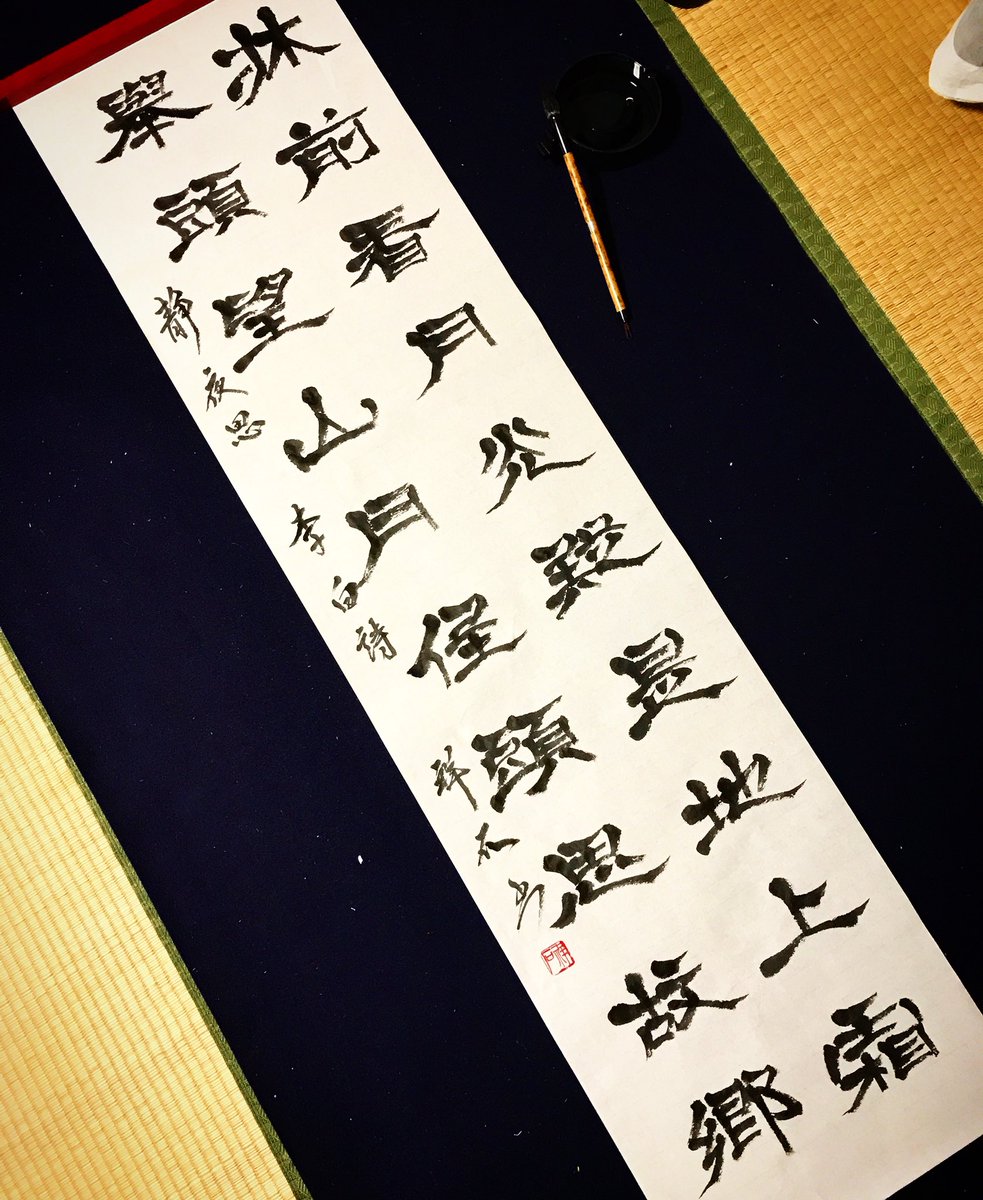 牀前看月光疑是地上霜
舉頭望山月低頭思故鄉
靜夜思 李白詩 祥石书